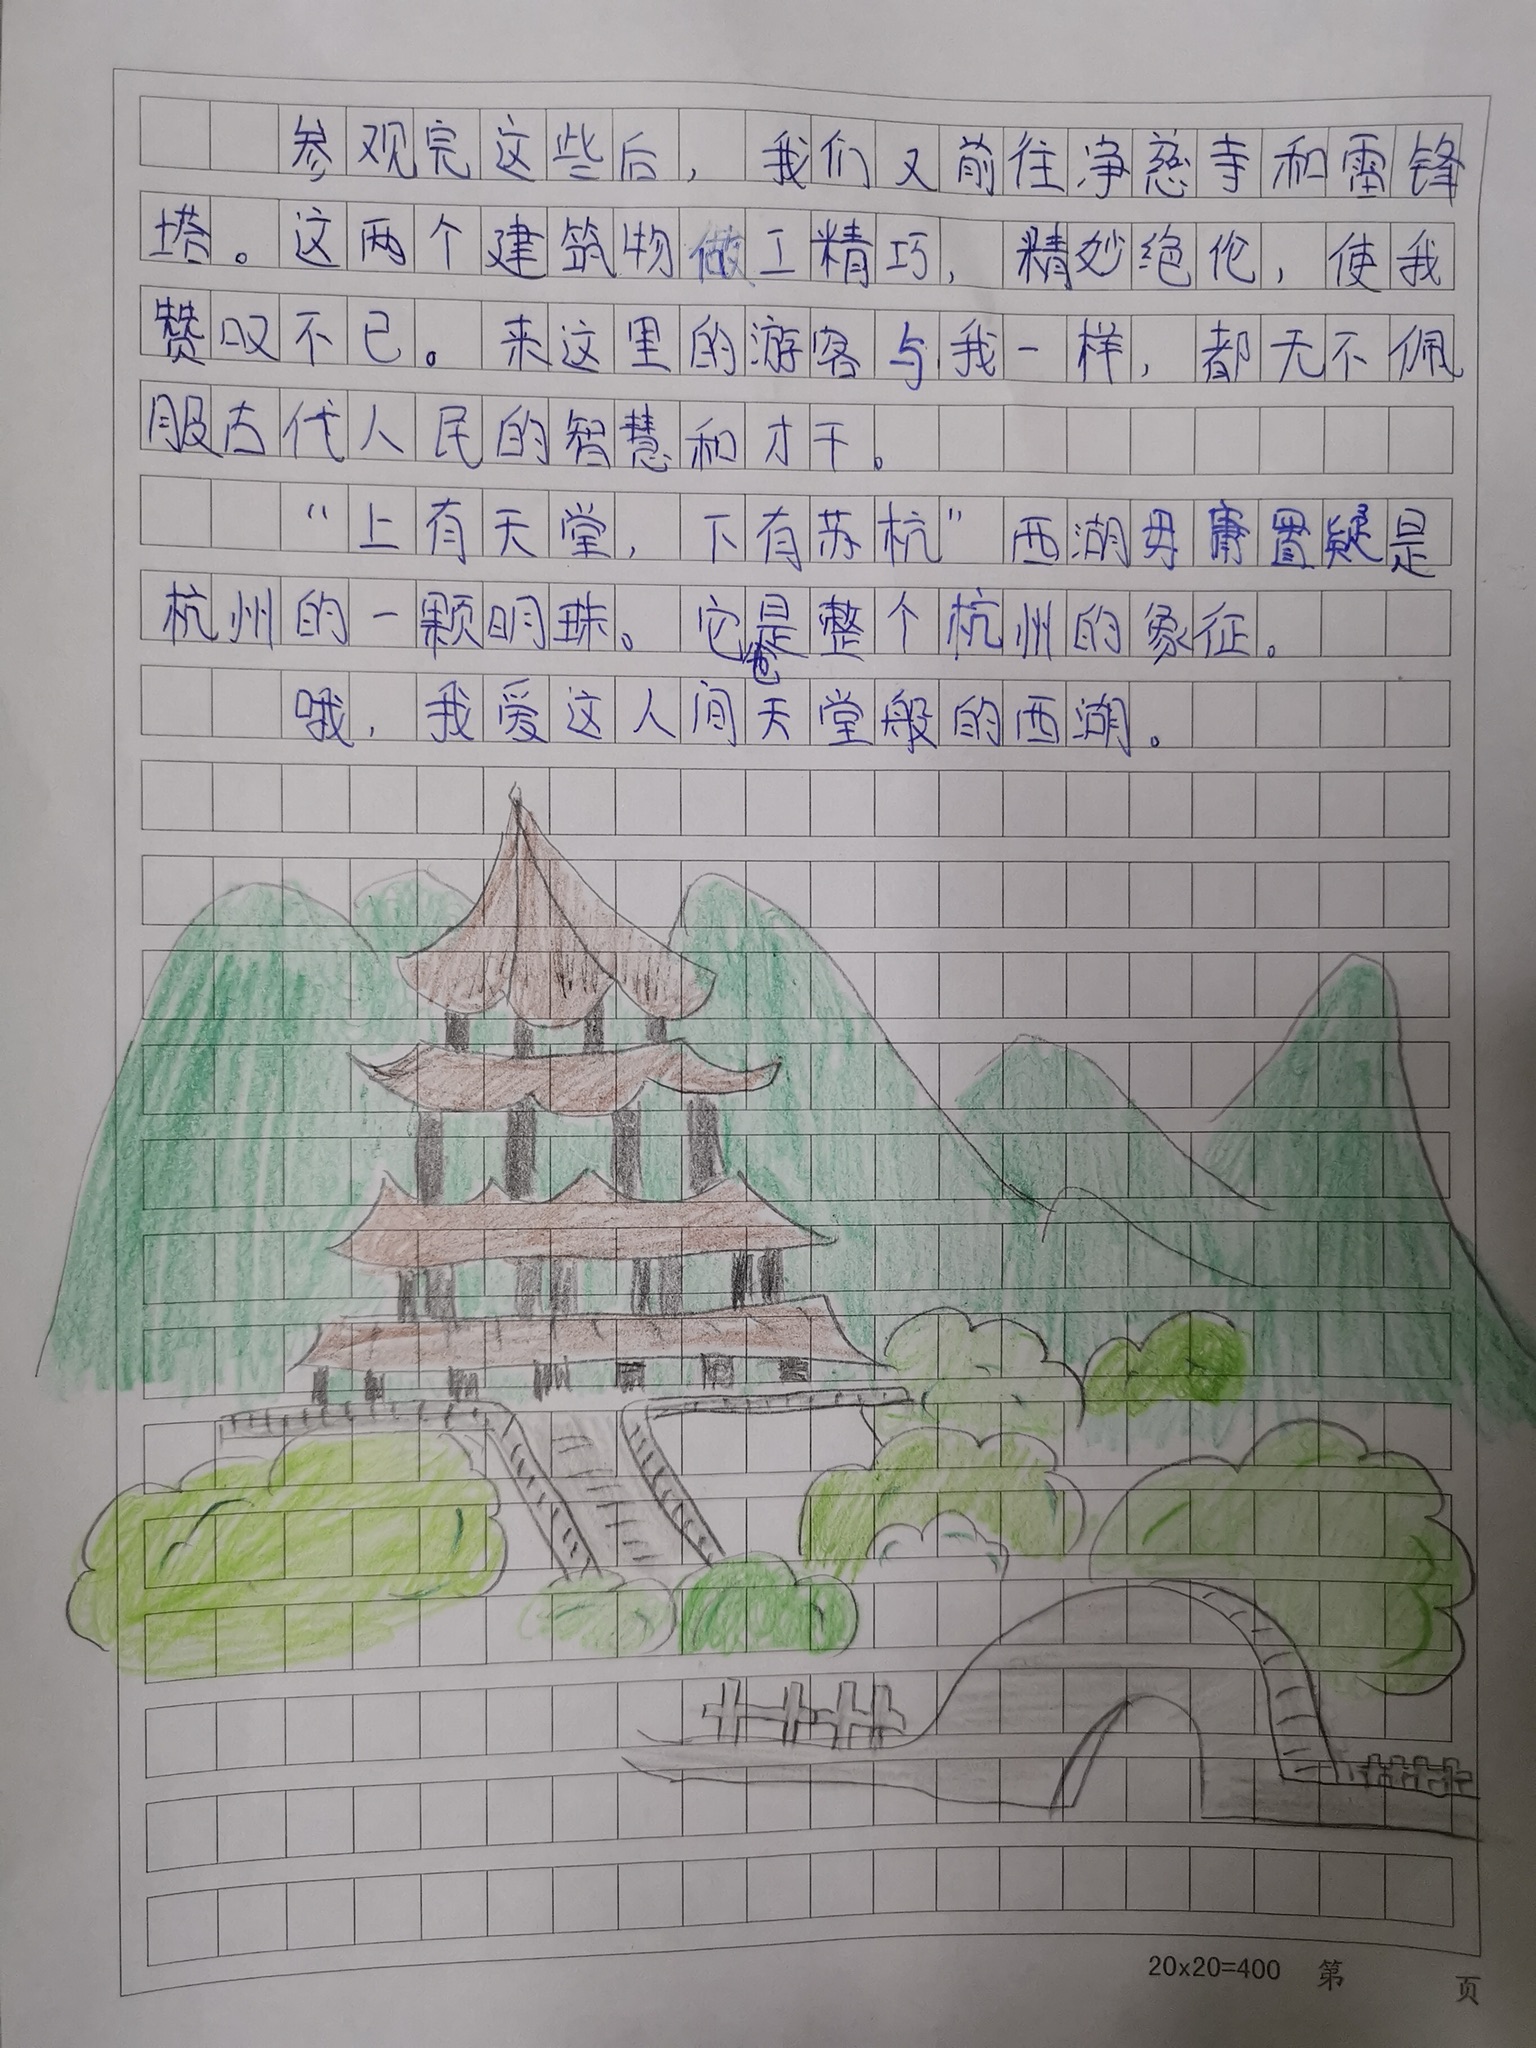 参观完这些后，我们又前往净慈寺和雷锋
塔。这两个建筑物做工精巧，精妙绝伦，使我
赞叹不已。来这里的游客与我一样，都无不佩
服古代人民的智慧和才干。
“上有天堂，下有苏杭”西湖毋庸置疑是
杭州的一颗明珠。它也是整个杭州的象征。
哦，我爱这人间天堂般的西湖。
20x20=400 第 页